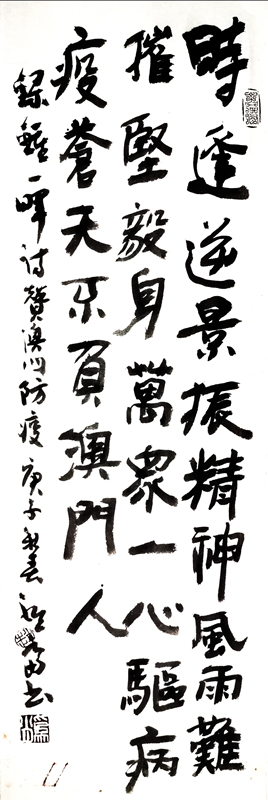 時逢逆景振精神風雨難
摧堅毅身萬眾一心驅病
疫蒼天不負澳門人
錄鍾一暉詩贊澳門防疫庚子